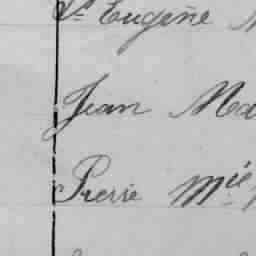 St Eugène
Jean Ma
Pierre Mie